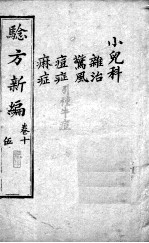 小兒科
雜治
驚風
痘症
痳症
驗方新編
卷十
伍